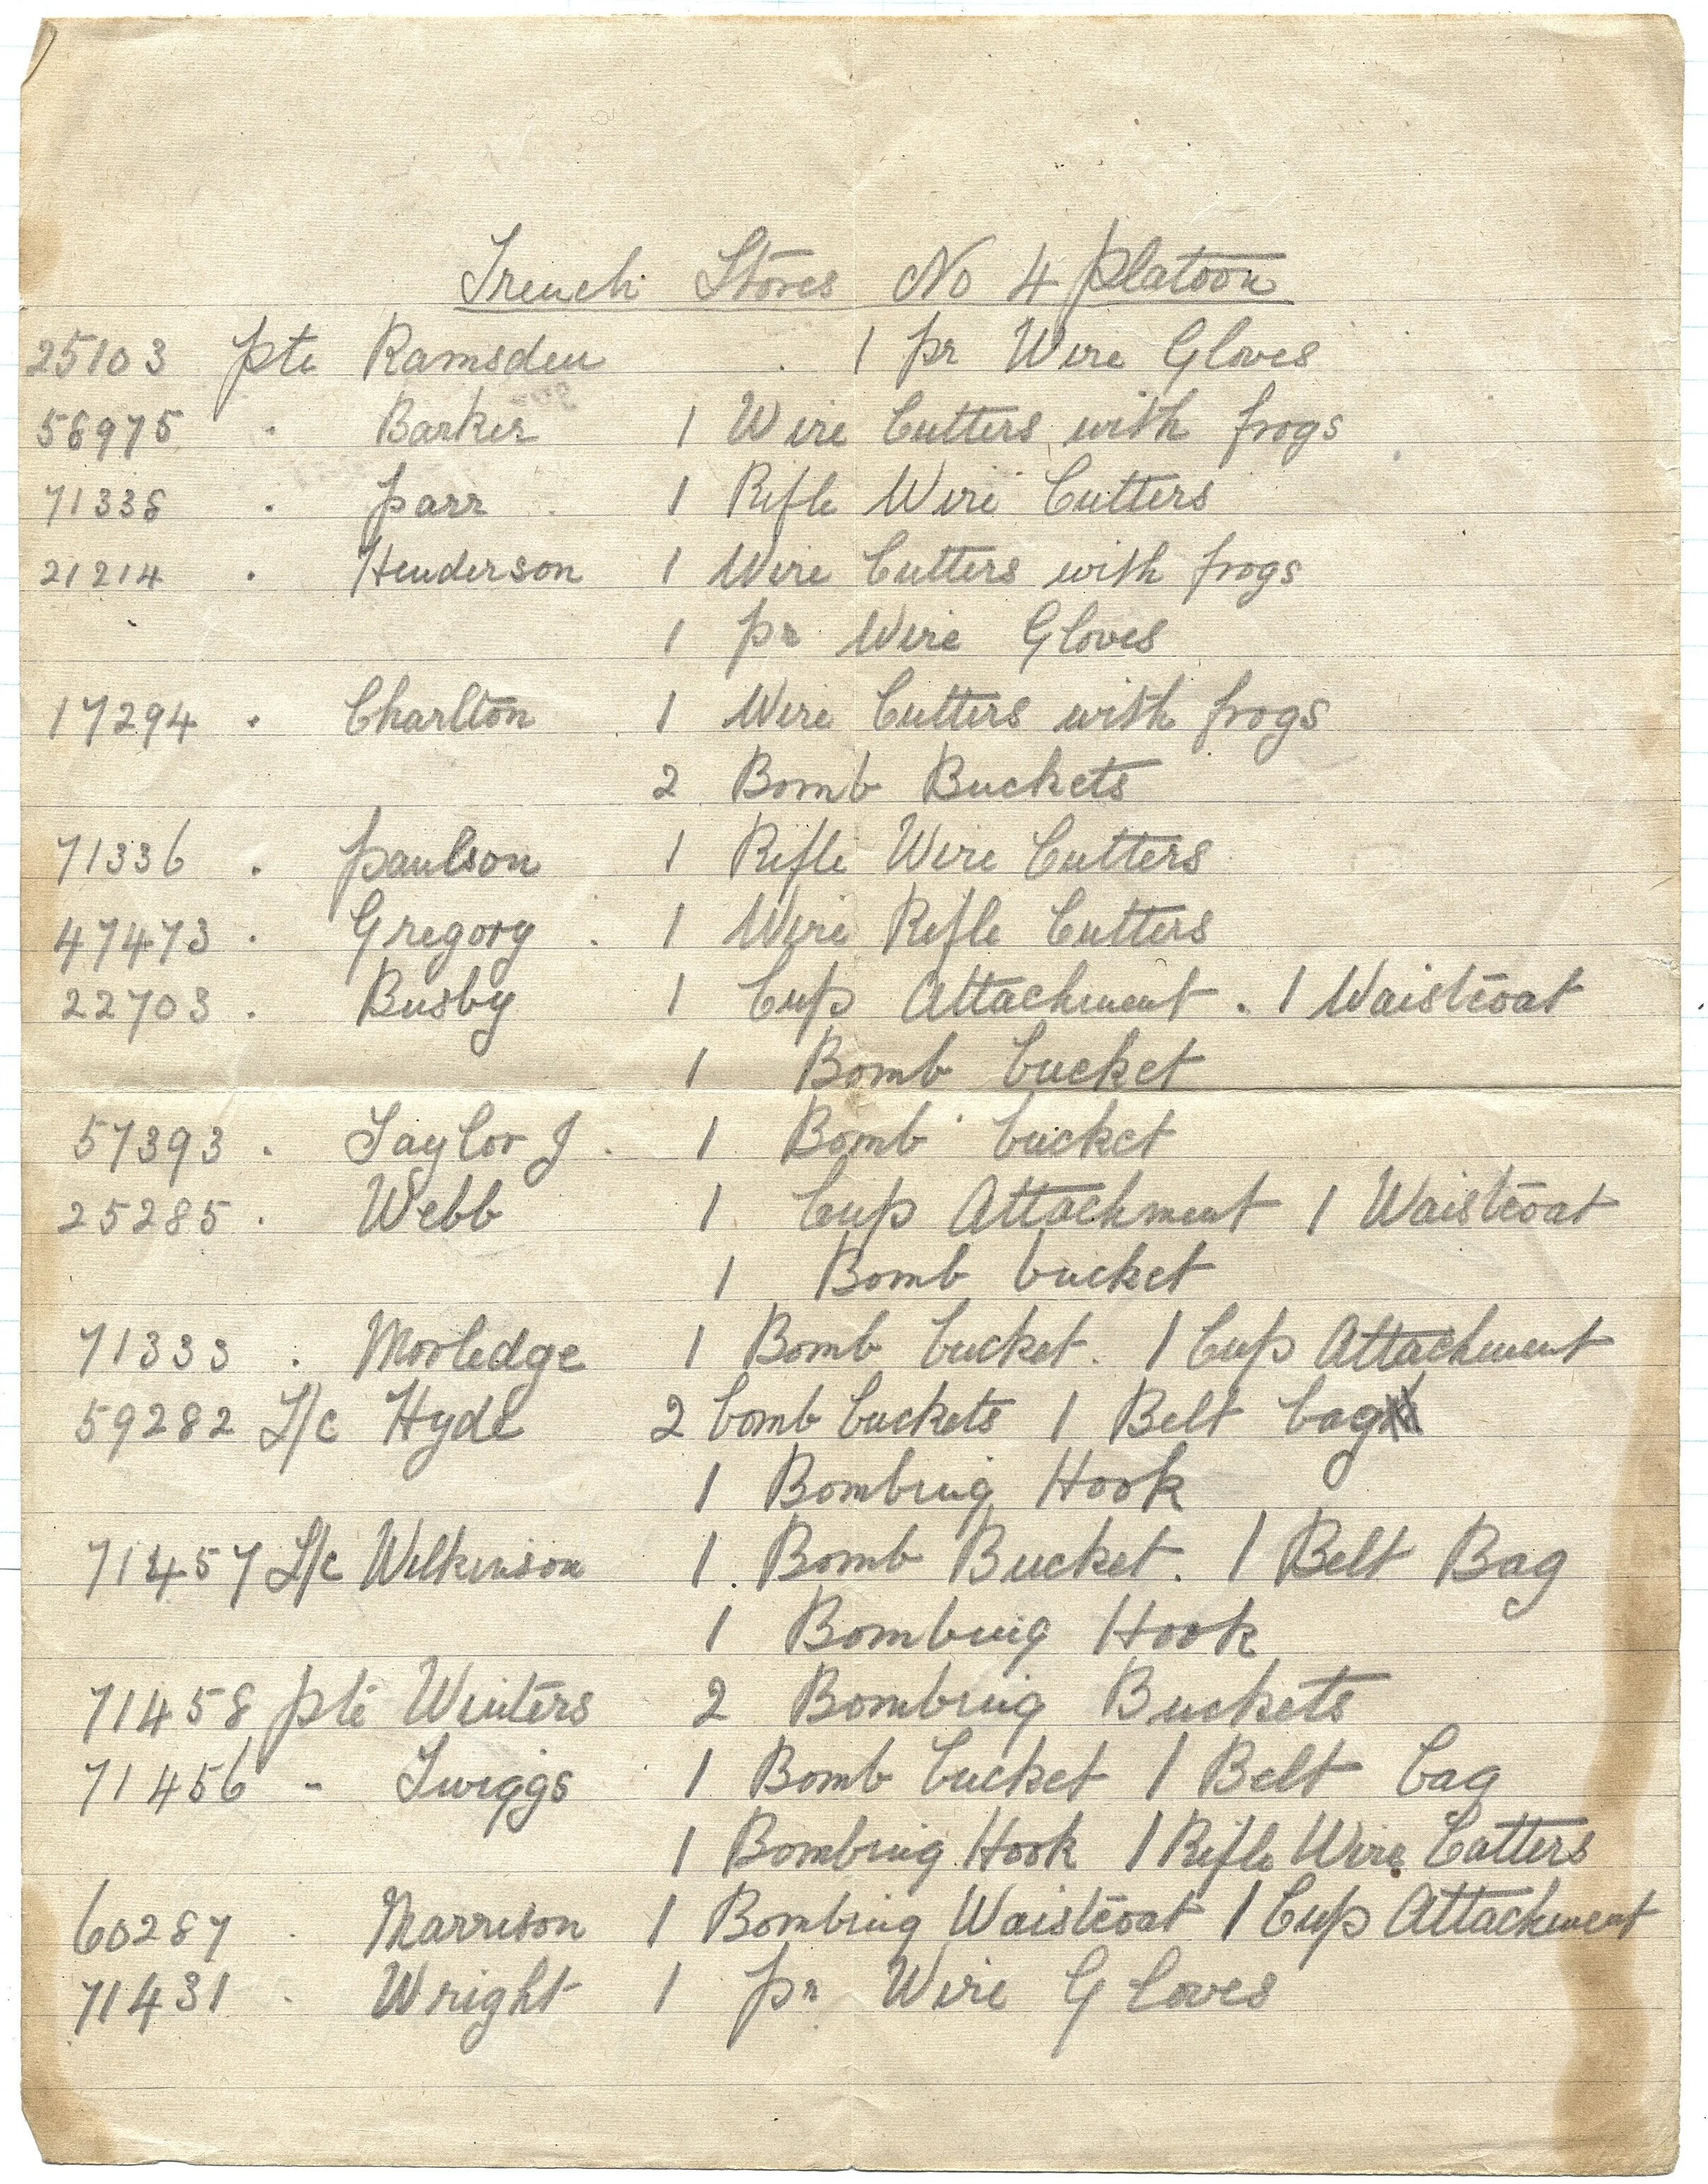 Trench Stores No 4 Platoon
25103 Pte Ramsden . 1 pr Wire Gloves
58975 . Barker 1 Wire Cutters with frogs
71338 . Parr 1 Rifle Wire Cutters
21214 . Henderson 1 Wire Cutters with frogs
1 pr Wire Gloves
17294 . Charlton 1 Wire Cutters with frogs
2 Bomb Buckets
71336 . Paulson 1 Rifle Wire Cutters
47473 . Gregory . 1 Wire Rifle Cutters
22703 . Busby 1 Cup Attachment . 1 Waistcoat
1 Bomb bucket
57393 . Taylor J . 1 Bomb bucket
25285 . Webb 1 Cup Attachment 1 Waistcoat
1 Bomb bucket
71333 . Morledge 1 Bomb bucket . 1 Cup Attachment
59282 L/c Hyde 2 bomb buckets 1 Belt bag
1 Bombing Hook
71457 L/c Wilkinson 1 . Bomb Bucket . 1 Belt Bag
1 Bombing Hook
71458 Pte Winters 2 Bombing Buckets
71456 - Twiggs 1 Bomb bucket 1 Belt bag
1 Bombing Hook 1 Rifle Wire Cutters
60287 . Marrison 1 Bombing Waistcoat 1 Cup Attachment
71431 . Wright 1 pr Wire Gloves